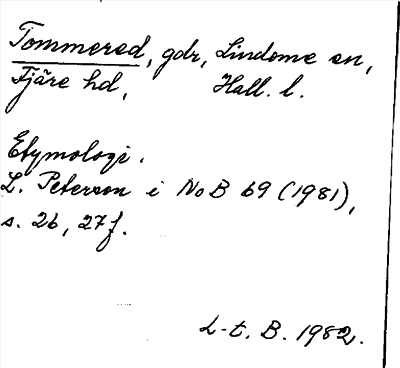 Tommered, gdr, Lindome sn,
Fjäre hd, Hall. l.
Etymologi.
L. Peterson i NoB 69 (1981),
s. 26, 27f.
L-t. B. 1982.